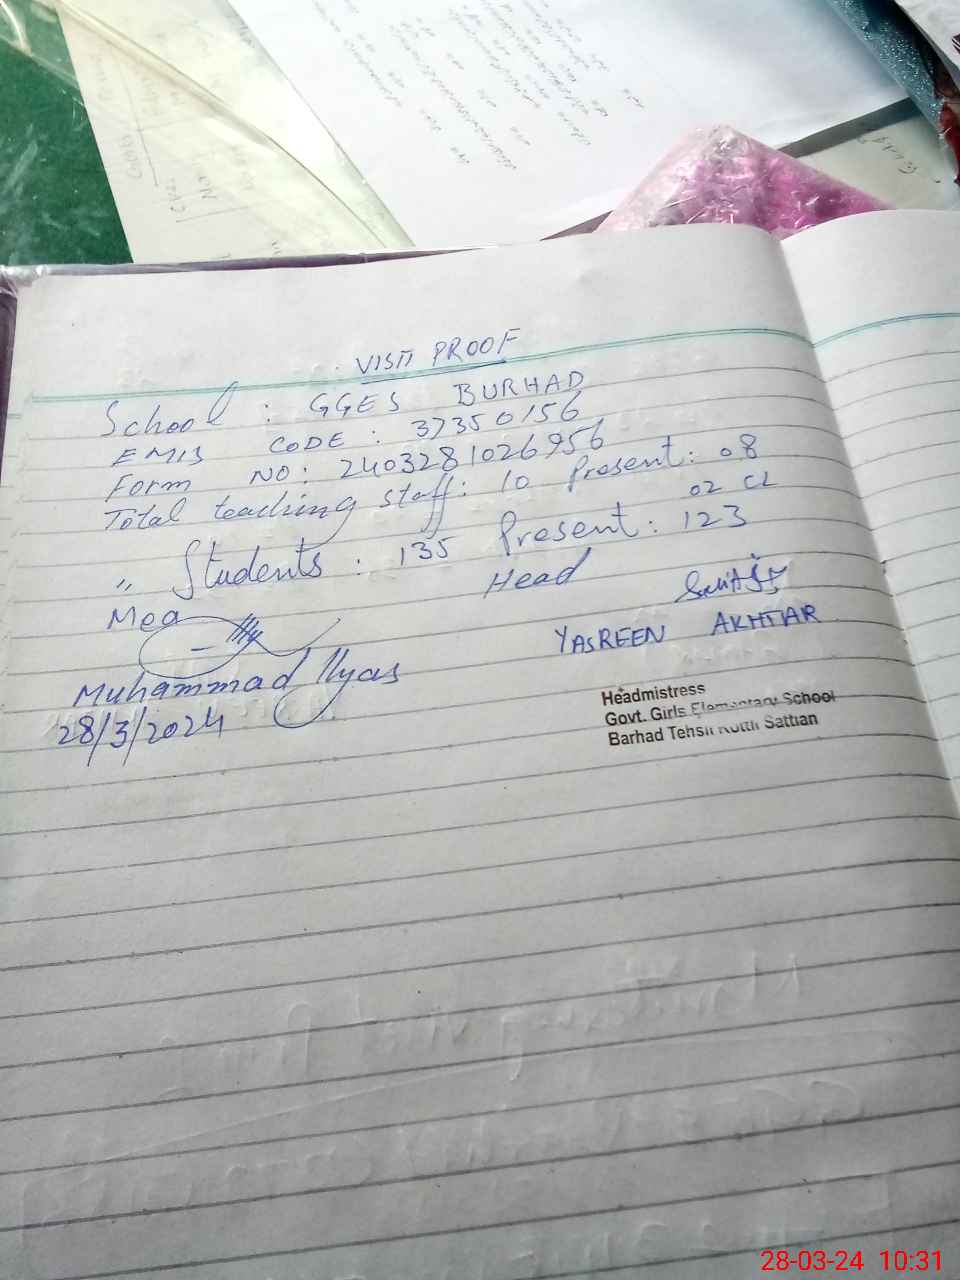 VISIT PROOF
School : GGES BURHAD
EMIS CODE : 37350156
Form NO: 2403281026956
Total teaching staff: 10 Present: 08
02 CL
" Students : 135 Present: 123
Mea Head
YASREEN AKHTAR
Muhammad Ilyas
28/3/2024
Headmistress
Govt. Girls Elementary School
Barhad Tehsil Kotli Sattian
28-03-24 10:31